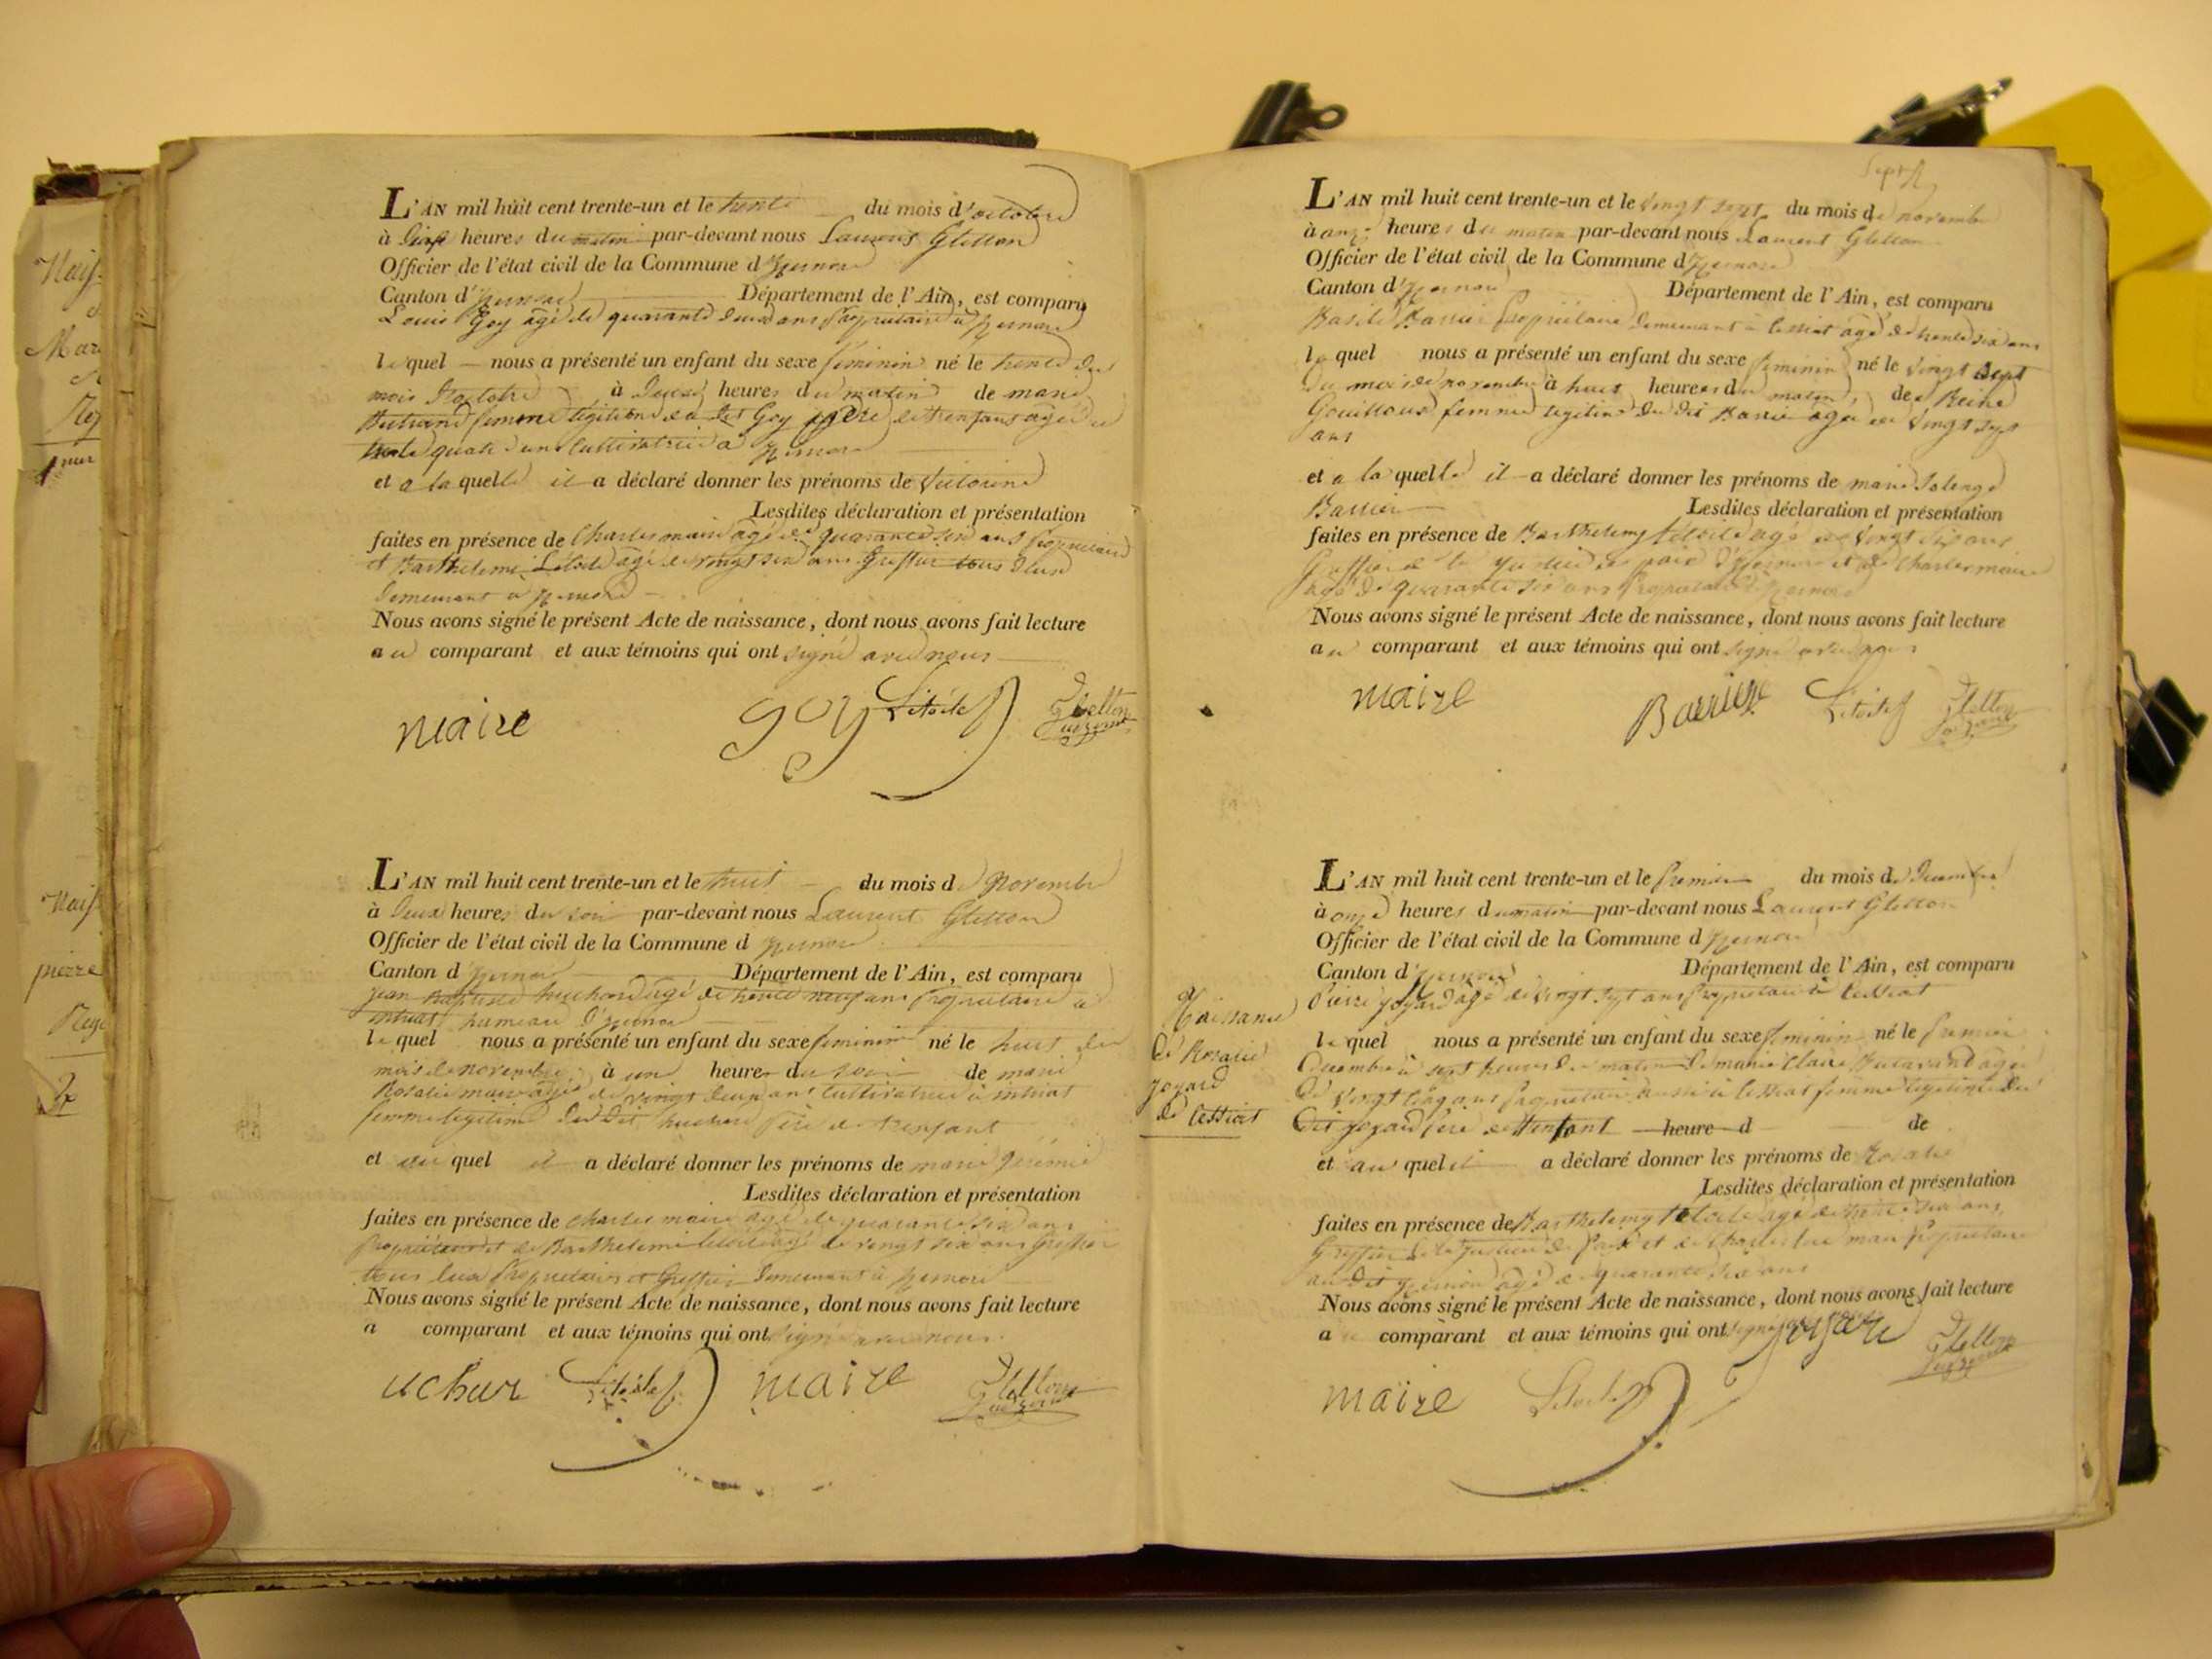 L'AN mil huit cent trente-un et le trente du mois d'octobre
à heures du matin par-devant nous Laurent Gletton
Officier de l'état civil de la Commune d'izernore
Canton d'izernore Département de l'Ain, est comparu
Louis Goy âgé de quarante deux ans Propriétaire à izernore
lequel nous a présenté un enfant du sexe feminin né le trente du
mois d'octobre à deux heures du matin de marie
femme légitime du dit Goy père de l'enfant agée de
trente quatre ans cultivatrice à izernore
et a la quelle il a déclaré donner les prénoms de Victorine
Lesdites déclaration et présentation
faites en présence de Charles maire agé de quarante six ans Propriétaire
et Barthelemi Létoile agé de vingt six ans Greffier tous deux
demeurant a izernore
Nous avons signé le présent Acte de naissance, dont nous avons fait lecture
au comparant et aux témoins qui ont signé avec nous
maire goy Létoile Gletton
L'AN mil huit cent trente-un et le huit du mois de Novembre
à deux heures du soir par-devant nous Laurent Gletton
Officier de l'état civil de la Commune d izernore
Canton d'izernore Département de l'Ain, est comparu
jean Baptiste huchard agé de trente neuf ans Propriétaire à
intriat hameau d'izernore
le quel nous a présenté un enfant du sexe feminin né le huit du
mois de novembre à une heure du soir de marie
Rosalie maire agée de vingt deux ans cultivatrice à intriat
femme légitime du dit huchard père de l'enfant
et au quel il a déclaré donner les prénoms de marie
Lesdites déclaration et présentation
faites en présence de Charles maire agé de quarante six ans
Propriétaire et de Barthelemi Létoile agé de vingt six ans Greffier
tous deux Propriétaires et Greffier demeurant à izernore
Nous avons signé le présent Acte de naissance, dont nous avons fait lecture
a comparant et aux témoins qui ont signé avec nous
uchar Létoile maire Gletton
L'AN mil huit cent trente-un et le vingt sept du mois de novembre
à onze heures du matin par-devant nous Laurent Gletton
Officier de l'état civil de la Commune d'izernore
Canton d'izernore Département de l'Ain, est comparu
Basile Barrier Propriétaire demeurant à lessiat âgé de trente six ans
le quel nous a présenté un enfant du sexe feminin né le vingt sept
du mois de novembre à huit heures du matin, de Reine
Gouilloux femme légitime du dit Barrier agée de vingt sept
ans
et a la quelle il a déclaré donner les prénoms de marie Solenge
Barrier Lesdites déclaration et présentation
faites en présence de Barthelemy Létoile agé de vingt six ans
Greffier de la justice de paix d'izernore et de Charles maire
agé de quarante six ans Propriétaire izernore
Nous avons signé le présent Acte de naissance, dont nous avons fait lecture
au comparant et aux témoins qui ont signé avec nous
maire Barrier Létoile Gletton
Naissance
de Rosalie
joyard
de lessiat
L'AN mil huit cent trente-un et le Premier du mois de décembre
à onze heures du matin par-devant nous Laurent Gletton
Officier de l'état civil de la Commune d izernore
Canton d'izernore Département de l'Ain, est comparu
Pierre joyard âgé de vingt sept ans Propriétaire à lessiat
le quel nous a présenté un enfant du sexe feminin né le Premier
Décembre à sept heures du matin de marie Claire agée
de vingt cinq ans Propriétaire aussi à lessiat femme légitime du
Dit joyard père de l'enfant heure d de
et au quel il a déclaré donner les prénoms de Rosalie
Lesdites déclaration et présentation
faites en présence de Barthelemy Létoile agé de six ans
Greffier de la justice de Paix et de Charles maire Propriétaire
au dit izernore âgé de quarante six ans
Nous avons signé le présent Acte de naissance, dont nous avons fait lecture
a comparant et aux témoins qui ont signé joyard Gletton
maire Létoile